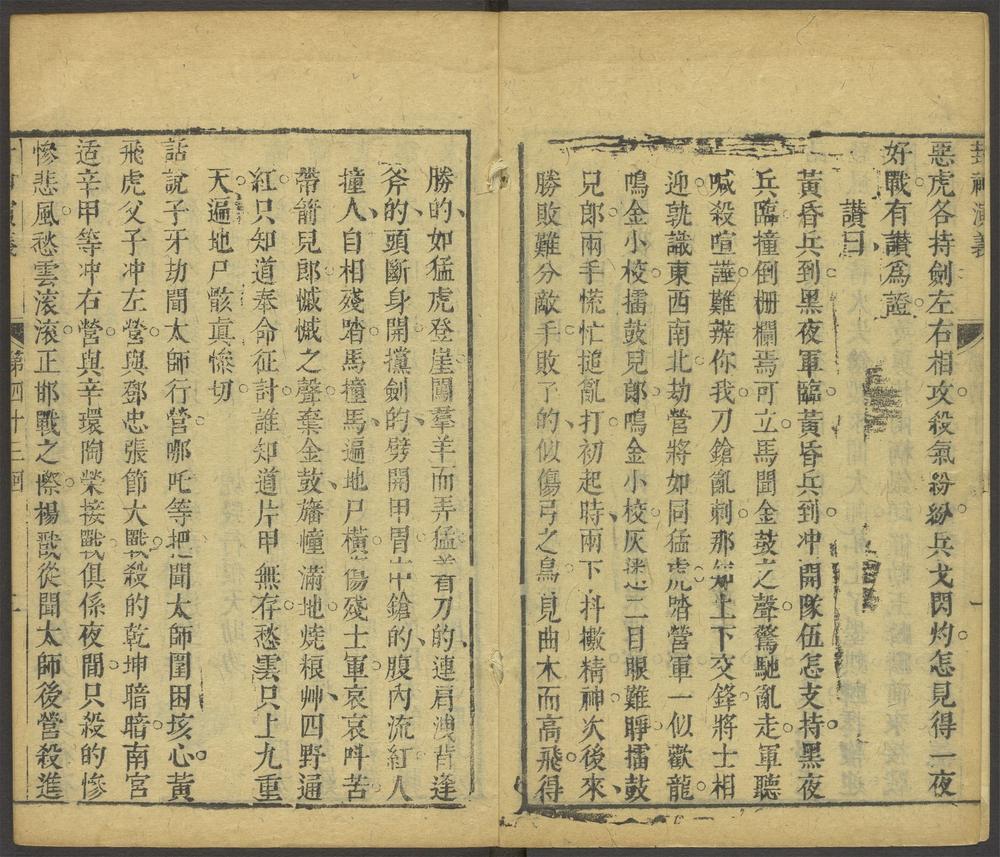 封神演義
惡虎各持劍左右相攻殺氣紛紛兵戈閃灼怎見得一夜
好戰有讚爲證
讚曰
黃昏兵到黑夜軍臨黃昏兵到冲開隊伍怎支持黑夜
兵臨撞倒柵欄焉可立馬聞金鼓之聲驚馳亂走軍聽
喊殺喧譁難辨你我刀鎗亂刺那知上下交鋒將士相
迎孰識東西南北劫營將如同猛虎踏營軍一似歡龍
鳴金小校擂鼓兒郎鳴金小校灰迷二目眼難睜擂鼓
兒郎兩手慌忙搥亂打初起時兩下抖擻精神次後來
勝敗難分敵手敗了的似傷弓之鳥見曲木而高飛得
勝的如猛虎登崖闖羣羊而弄猛着刀的連肩洩背逢
斧的頭斷身開攩劍的劈開甲冑中鎗的腹內流紅人
撞人自相殘踏馬撞馬遍地尸橫傷殘士軍哀哀呌苦
帶箭兒郎慽慽之聲棄金鼓旛幢滿地燒粮艸四野通
紅只知道奉命征討誰知道片甲無存愁雲只上九重
天遍地尸骸真慘切
話說子牙劫聞太師行營哪吒等把聞太師圍困垓心黃
飛虎父子冲左營與鄧忠張節大戰殺的乾坤暗暗南宮
适辛甲等冲右營與辛環陶榮接戰俱係夜間只殺的慘
慘悲風愁雲滾滾正邯戰之際楊戩從聞太師後營殺進
第四十三回